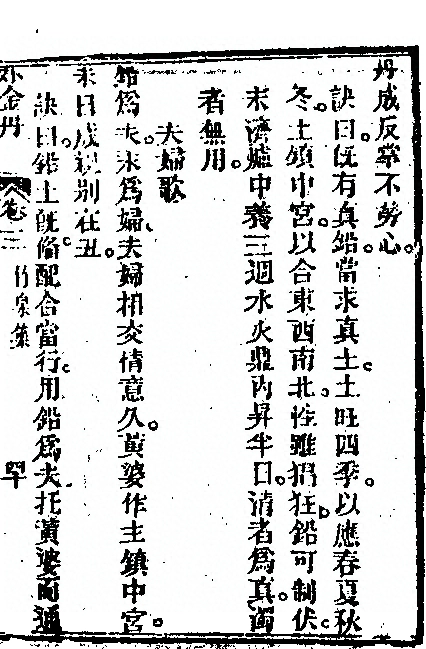 丹成反掌不勞心。
訣曰。既有真鉛。當求真土。土旺四季。以應春夏秋
冬。土鎮中宮。以合東西南北。性雖猖狂。鉛可制伏。
未濟爐中養三週。水火鼎內昇半日。清者為真。濁
者無用。
夫婦歌
鉛為夫。未為婦。夫婦相交情意久。黃婆作主鎮中宮。
未日成親別在丑。
訣曰。鉛土既脩。配合當行。用鉛為夫。托黃婆而通
外金丹 卷二 竹泉集